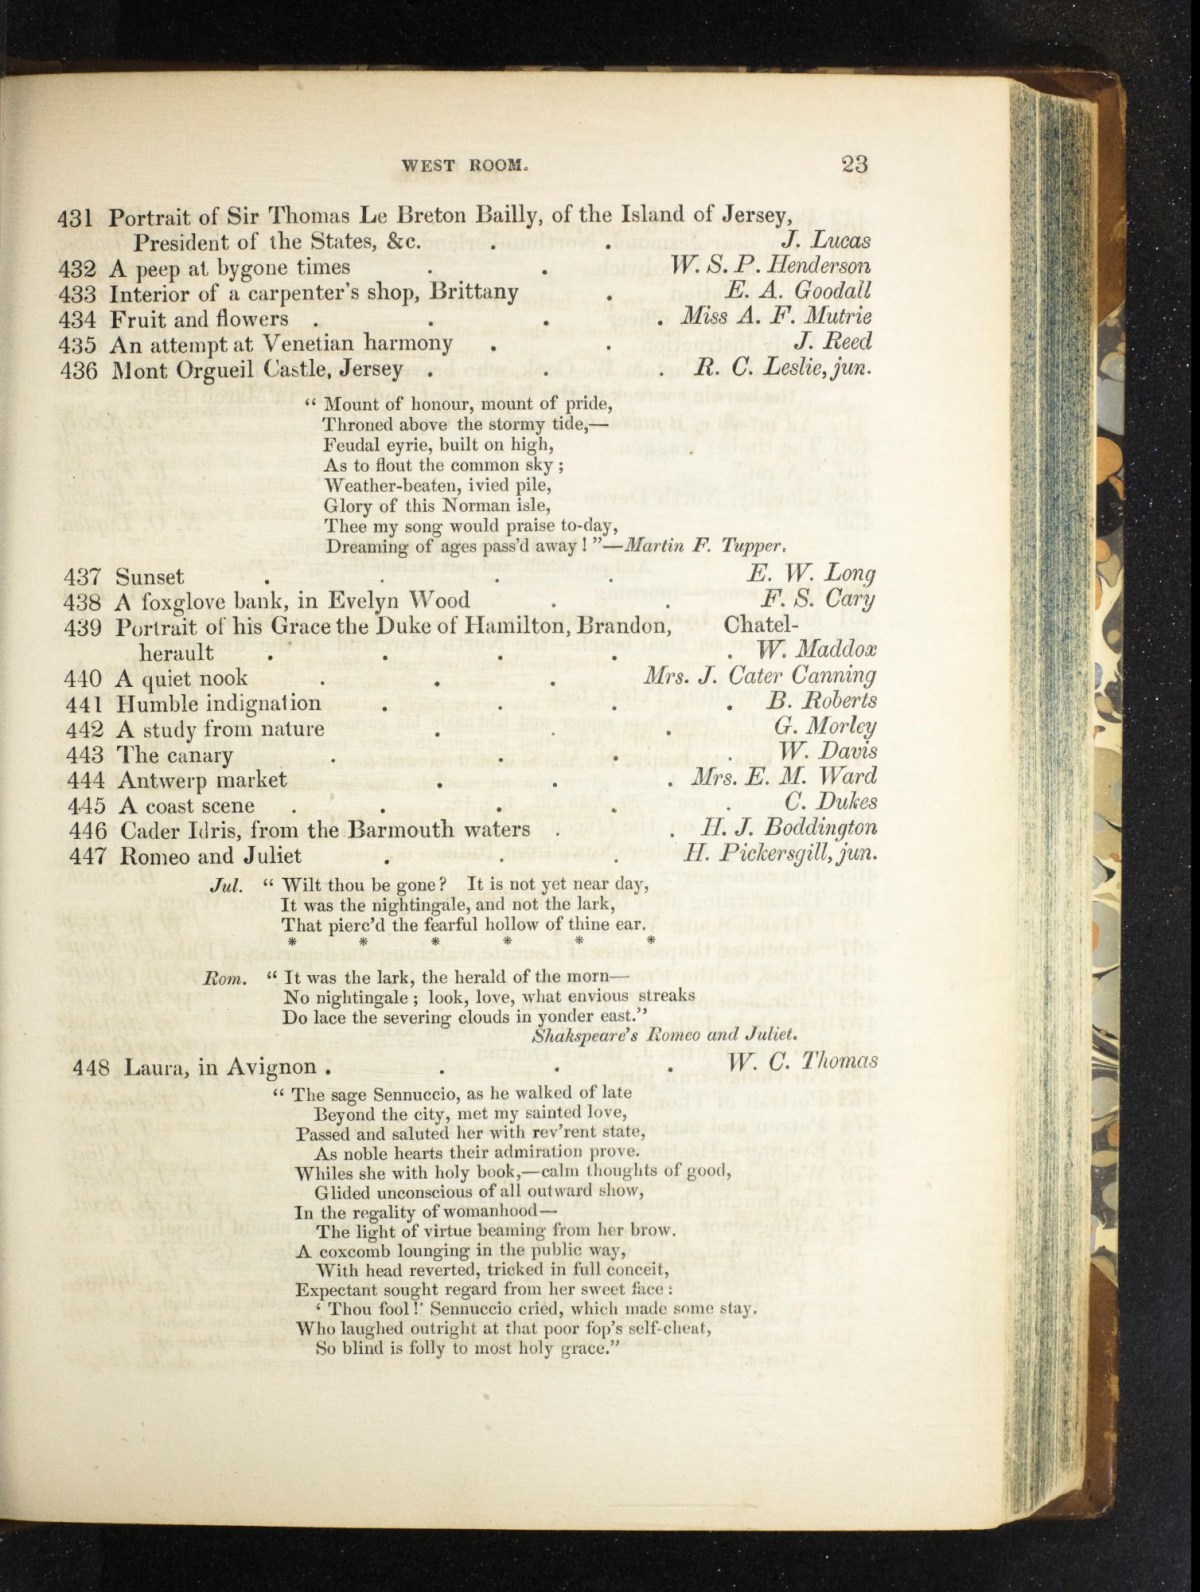 WEST ROOM. 23
431 Portrait of Sir Thomas Le Breton Bailly, of the Island of Jersey,
President of the States, &c. . . J. Lucas
432 A peep at bygone times . . W. S. P. Henderson
433 Interior of a carpenter's shop, Brittany . E. A. Goodall
434 Fruit and flowers . . . . Miss A. F. Mutrie
435 An attempt at Venetian harmony . . J. Reed
436 Mont Orgueil Castle, Jersey . . . R. C. Leslie, jun.
“ Mount of honour, mount of pride,
Throned above the stormy tide,—
Feudal eyrie, built on high,
As to flout the common sky ;
Weather-beaten, ivied pile,
Glory of this Norman isle,
Thee my song would praise to-day,
Dreaming of ages pass'd away ! ”—Martin F. Tupper.
437 Sunset . . . . E. W. Long
438 A foxglove bank, in Evelyn Wood . . F. S. Cary
439 Portrait of his Grace the Duke of Hamilton, Brandon, Chatel-
herault . . . . . W. Maddox
440 A quiet nook . . . Mrs. J. Cater Canning
441 Humble indignation . . . . B. Roberts
442 A study from nature . . . G. Morley
443 The canary . . . . W. Davis
444 Antwerp market . . . Mrs. E. M. Ward
445 A coast scene . . . . . C. Dukes
446 Cader Idris, from the Barmouth waters . . H. J. Boddington
447 Romeo and Juliet . . . H. Pickersgill, jun.
Jul. “ Wilt thou be gone ? It is not yet near day,
It was the nightingale, and not the lark,
That pierc'd the fearful hollow of thine ear.
* * * * * *
Rom. “ It was the lark, the herald of the morn—
No nightingale ; look, love, what envious streaks
Do lace the severing clouds in yonder east.”
Shakspeare's Romeo and Juliet.
448 Laura, in Avignon . . . . W. C. Thomas
“ The sage Sennuccio, as he walked of late
Beyond the city, met my sainted love,
Passed and saluted her with rev'rent state,
As noble hearts their admiration prove.
Whiles she with holy book,—calm thoughts of good,
Glided unconscious of all outward show,
In the regality of womanhood—
The light of virtue beaming from her brow.
A coxcomb lounging in the public way,
With head reverted, tricked in full conceit,
Expectant sought regard from her sweet face :
‘ Thou fool !’ Sennuccio cried, which made some stay.
Who laughed outright at that poor fop's self-cheat,
So blind is folly to most holy grace.”